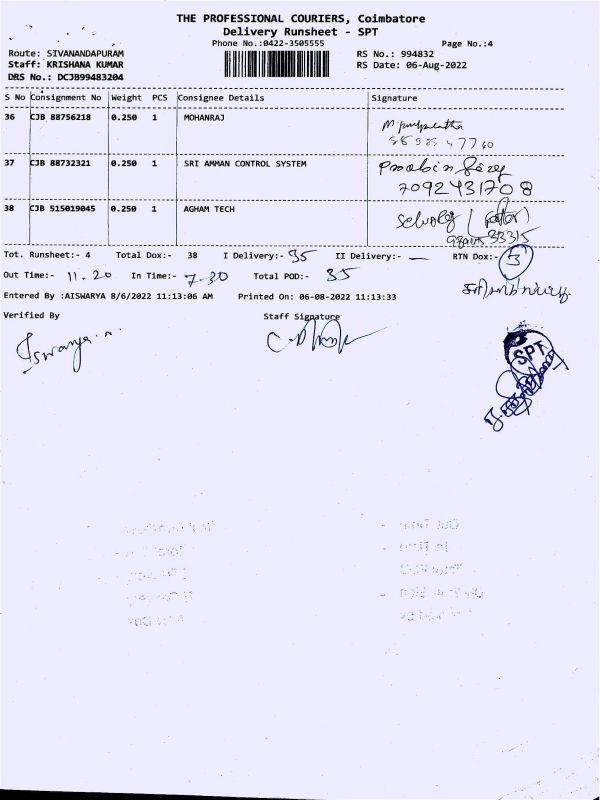 THE PROFESSIONAL COURIERS, Coimbatore
Delivery Runsheet - SPT
Phone No.:0422-3505555
Page No.:4
Route: SIVANANDAPURAM
RS No.: 994832
Staff: KRISHANA KUMAR
RS Date: 06-Aug-2022
DRS No.: DCJB99483204
S No Consignment No Weight PCS Consignee Details Signature
36 CJB 88756218 0.250 1 MOHANRAJ
37 CJB 88732321 0.250 1 SRI AMMAN CONTROL SYSTEM
7092431708
38 CJB 515019045 0.250 1 AGHAM TECH
Tot. Runsheet:- 4 Total Dox:- 38 I Delivery:- 35 II Delivery:- — RTN Dox:- 3
Out Time:- 11.20 In Time:- 7.30 Total POD:- 35
Entered By :AISWARYA 8/6/2022 11:13:06 AM Printed On: 06-08-2022 11:13:33
Verified By Staff Signature
Iswarya.n
SPT